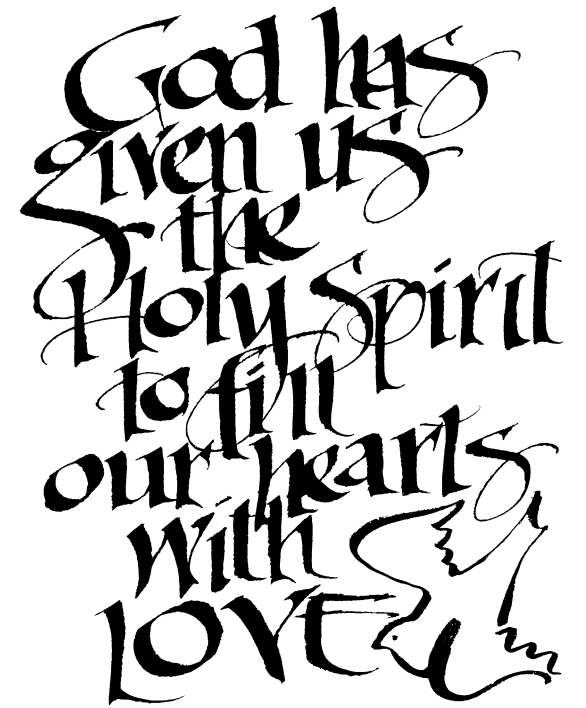 God has
given us
the
Holy Spirit
to fill
our hearts
with
LOVE